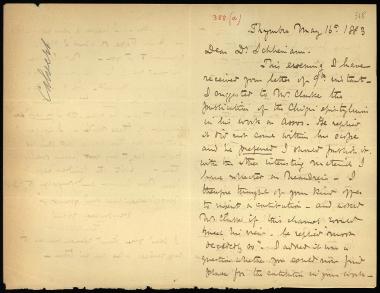 Calvert
388 (a)
318
Thymbra May 16th 1883
Dear Dr. Schliemann.
This evening I have
received your letter of 9th instant –
I suggested to Mr. Clarke the
publication of the Chigri epistylium
in his work on Assos. He replied
it did not come within his scope
and he preferred I should publish it
with the other interesting material I
have collected on Neandreia – I
therefore thought of your kind offer
to insert a contribution – and asked
Mr. Clarke if this channel would
meet his view. he replied "most
decidedly so". I added it was a
question whether you could now find
place for the contribution in your work –